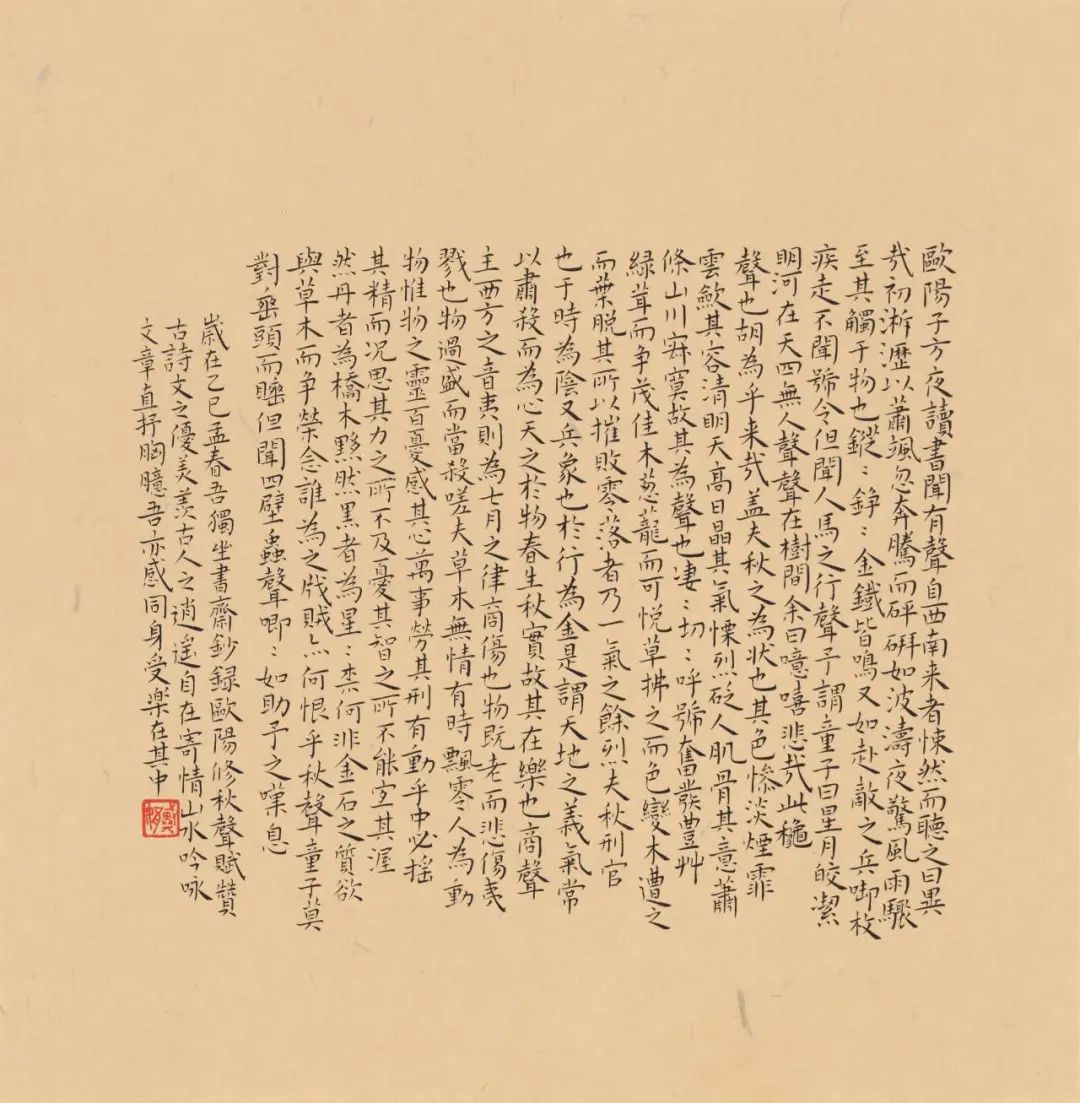 歐陽子方夜讀書聞有聲自西南来者悚然而聽之曰異
哉初淅瀝以蕭颯忽奔騰而砰硑如波濤夜驚風雨驟
至其觸于物也鏦:錚:金鐵皆鳴又如赴敵之兵啣枚
疾走不聞號令但聞人馬之行聲予謂童子曰星月皎潔
明河在天四無人聲聲在樹間余曰噫嘻悲哉此龝
聲也胡為乎来哉盖夫秋之為状也其色慘淡煙霏
雲歛其容清明天高日晶其氣慄烈砭人肌骨其意蕭
條山川寂寞故其為聲也凄:切:呼號奮發豐艸
緑茸而争茂佳木葱蘢而可悦草拂之而色變木遭之
而葉脱其所以摧敗零落者乃一氣之餘烈夫秋刑官
也于時為陰又兵象也於行為金是謂天地之義氣常
以肅殺而為心天之於物春生秋實故其在樂也商聲
主西方之音夷則為七月之律商傷也物既老而悲傷夷
戮也物過盛而當殺嗟夫草木無情有時飄零人為動
物惟物之靈百憂感其心萬事勞其刑有動乎中必摇
其精而况思其力之所不及憂其智之所不能宜其渥
然丹者為槁木黟然黑者為星:柰何非金石之質欲
與草木而争榮念誰為之戕賊亦何恨乎秋聲童子莫
對垂頭而睡但聞四壁蟲聲唧:如助予之嘆息
歳在乙巳孟春吾獨坐書齋鈔録歐陽修秋聲賦贊
古詩文之優美羨古人之逍遥自在寄情山水吟咏
文章直抒胸臆吾亦感同身受樂在其中